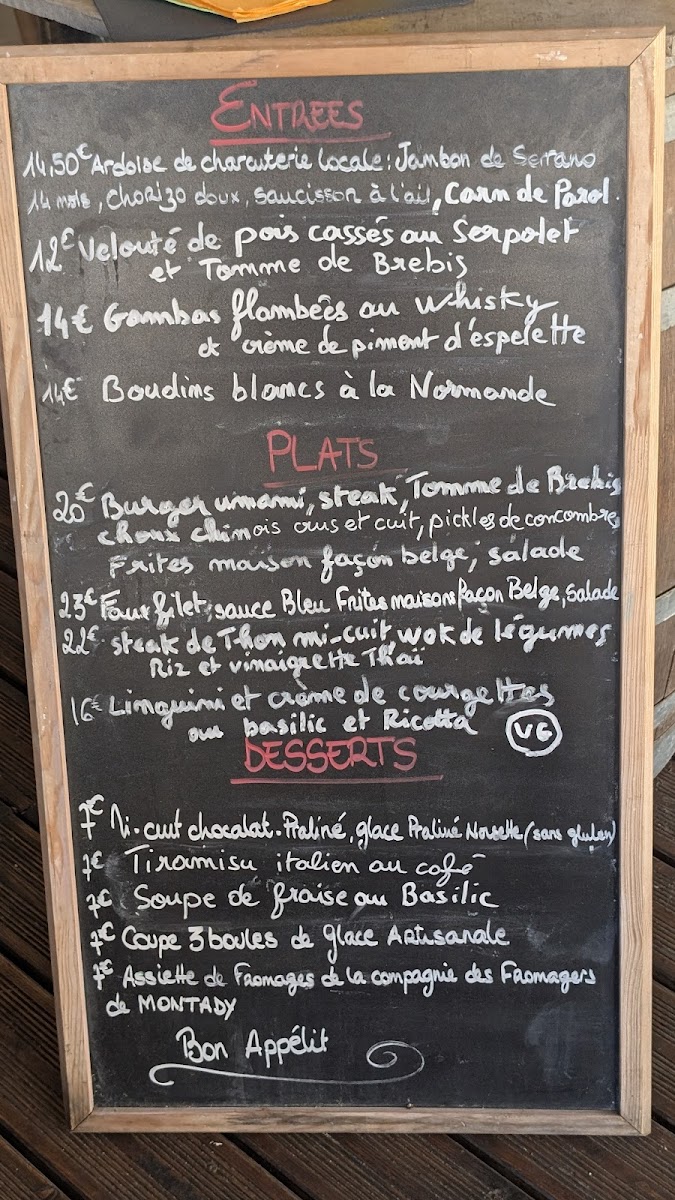 ENTREES
14,50€ Ardoise de charcuterie locale: Jambon de Serrano
14 mois, chorizo doux, saucisson à l'ail, Carn de Parol.
12€ Velouté de pois cassés au Serpolet
et Tomme de Brebis
14€ Gambas flambées au whisky
et crème de piment d'espelette
14€ Boudins blancs à la Normande
PLATS
20€ Burger umami, steak, Tomme de Brebis
choux chinois crus et cuit, pickles de concombres
Frites maison façon belge, salade
23€ Faux filet, sauce Bleu Frites maisons façon Belge, Salade
22€ steak de Thon mi-cuit, wok de légumes
Riz et vinaigrette Thaï
16€ Linguini et crème de courgettes
au basilic et Ricotta VG
DESSERTS
7€ Mi-cuit chocolat-Praliné, glace Praliné Noisette (sans gluten)
7€ Tiramisu italien au café
7€ Soupe de fraise au Basilic
7€ Coupe 3 boules de glace Artisanale
7€ Assiette de Fromages de la compagnie des Fromagers
de MONTADY
Bon Appétit